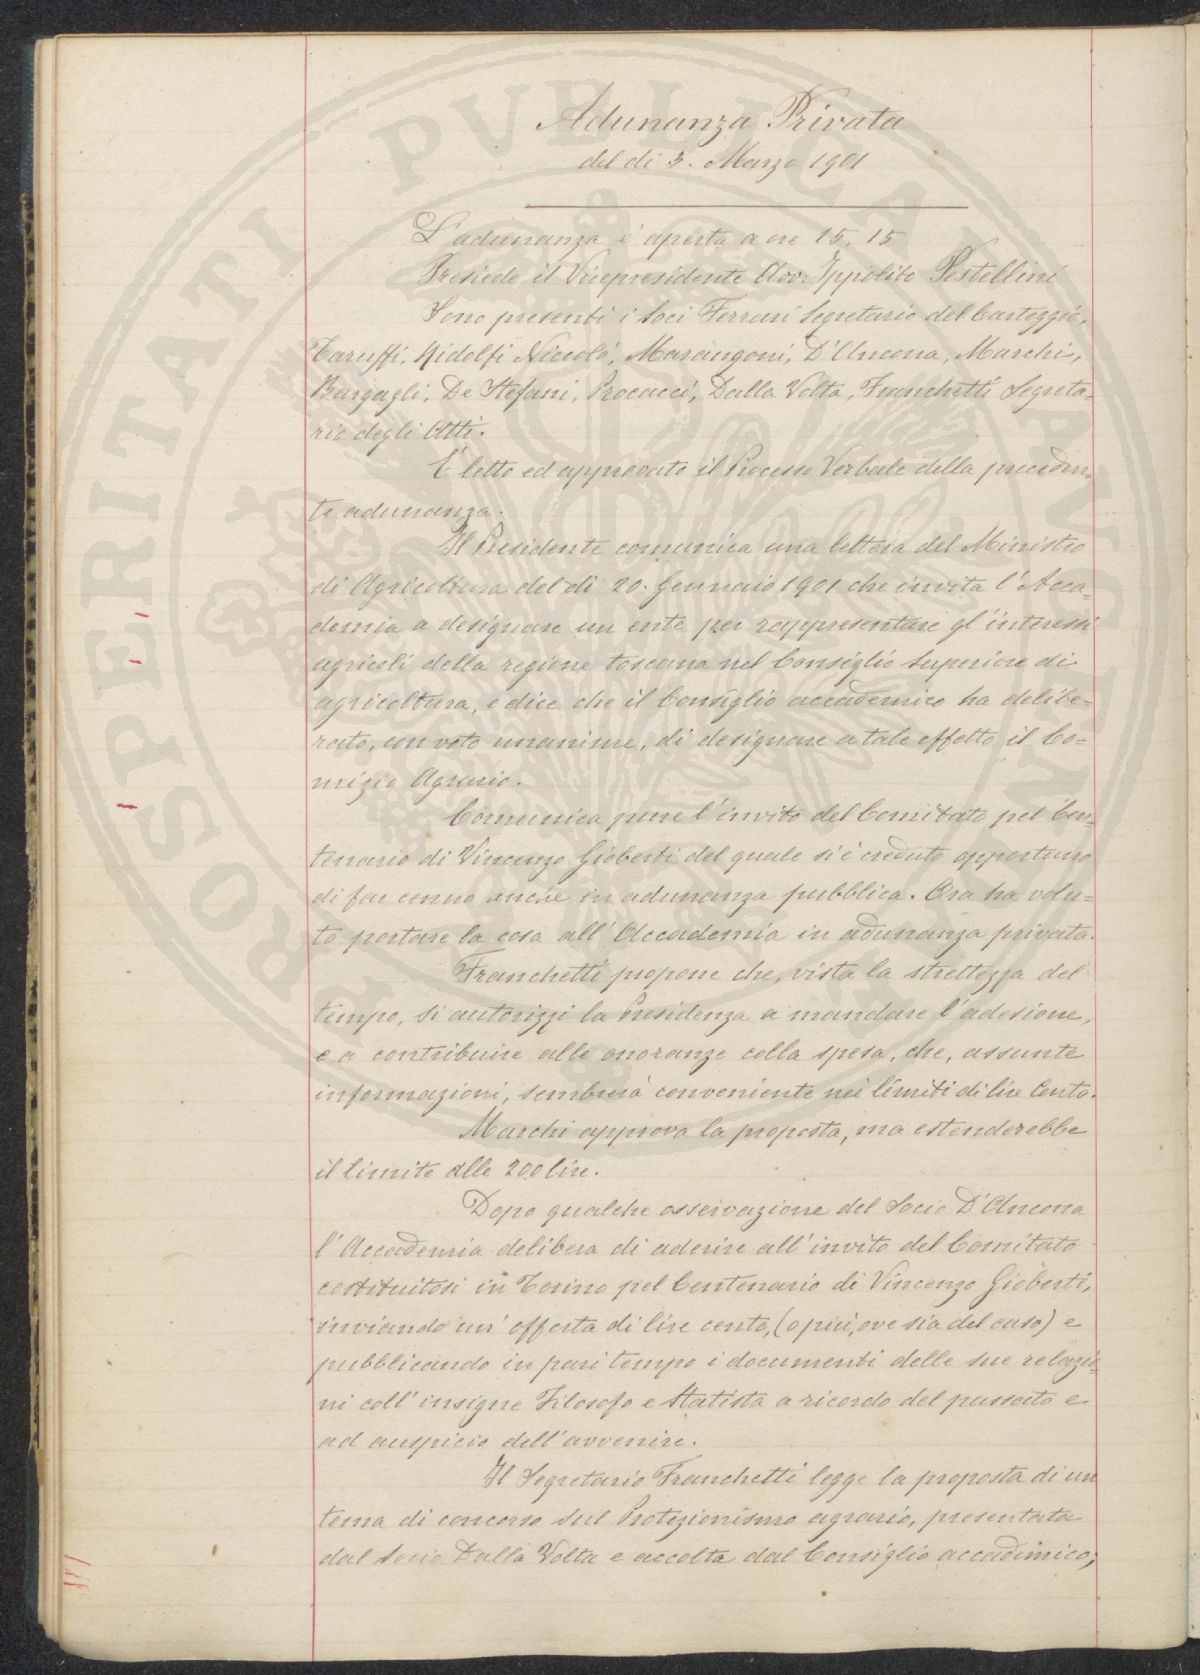 Adunanza Privata
del dì 3. Marzo 1901
L'adunanza è aperta a ore 15, 15
Presiede il Vicepresidente Avv: Ippolito Pestellini
Sono presenti i Soci Ferrari Segretario del Carteggio,
Caruffi, Ridolfi Niccolò, Marangoni, D'Ancona, Marchi,
Bargagli, De Stefani, Procacci, Dalla Volta, Franchetti Segreta-
rio degli Atti.
È letto ed approvato il Processo Verbale della preceden-
te adunanza.
Il Presidente comunica una lettera del Ministro
di Agricoltura del dì 20. Gennaio 1901 che invita l'Acca-
demia a designare un ente per rappresentare gl'interessi
agricoli della regione toscana nel Consiglio Superiore di
agricoltura, e dice che il Consiglio accademico ha delibe-
rato, con voto unanime, di designare a tale effetto il Co-
mizio Agrario.
Comunica pure l'invito del Comitato pel Cen-
tenario di Vincenzo Gioberti del quale si è creduto opportuno
di far cenno anche in adunanza pubblica. Ora ha volu-
to portare la cosa all'Accademia in adunanza privata.
Franchetti propone che, vista la strettezza del
tempo, si autorizzi la Presidenza a mandare l'adesione,
e a contribuire alle onoranze colla spesa, che, assunte
informazioni, sembrerà conveniente nei limiti di lire Cento.
Marchi approva la proposta, ma estenderebbe
il limite alle 200 lire.
Dopo qualche osservazione del Socio D'Ancona
l'Accademia delibera di aderire all'invito del Comitato
costituitosi in Torino pel Centenario di Vincenzo Gioberti,
inviando un'offerta di lire cento, (o più, ove sia del caso) e
pubblicando in pari tempo i documenti delle sue relazio-
ni coll'insigne Filosofo e Statista a ricordo del passato e
ad auspicio dell'avvenire.
Il Segretario Franchetti legge la proposta di un
tema di concorso sul Protezionismo agrario, presentata
dal Socio Dalla Volta e accolta dal Consiglio accademico;
PROSPERITATI PVBLICAE